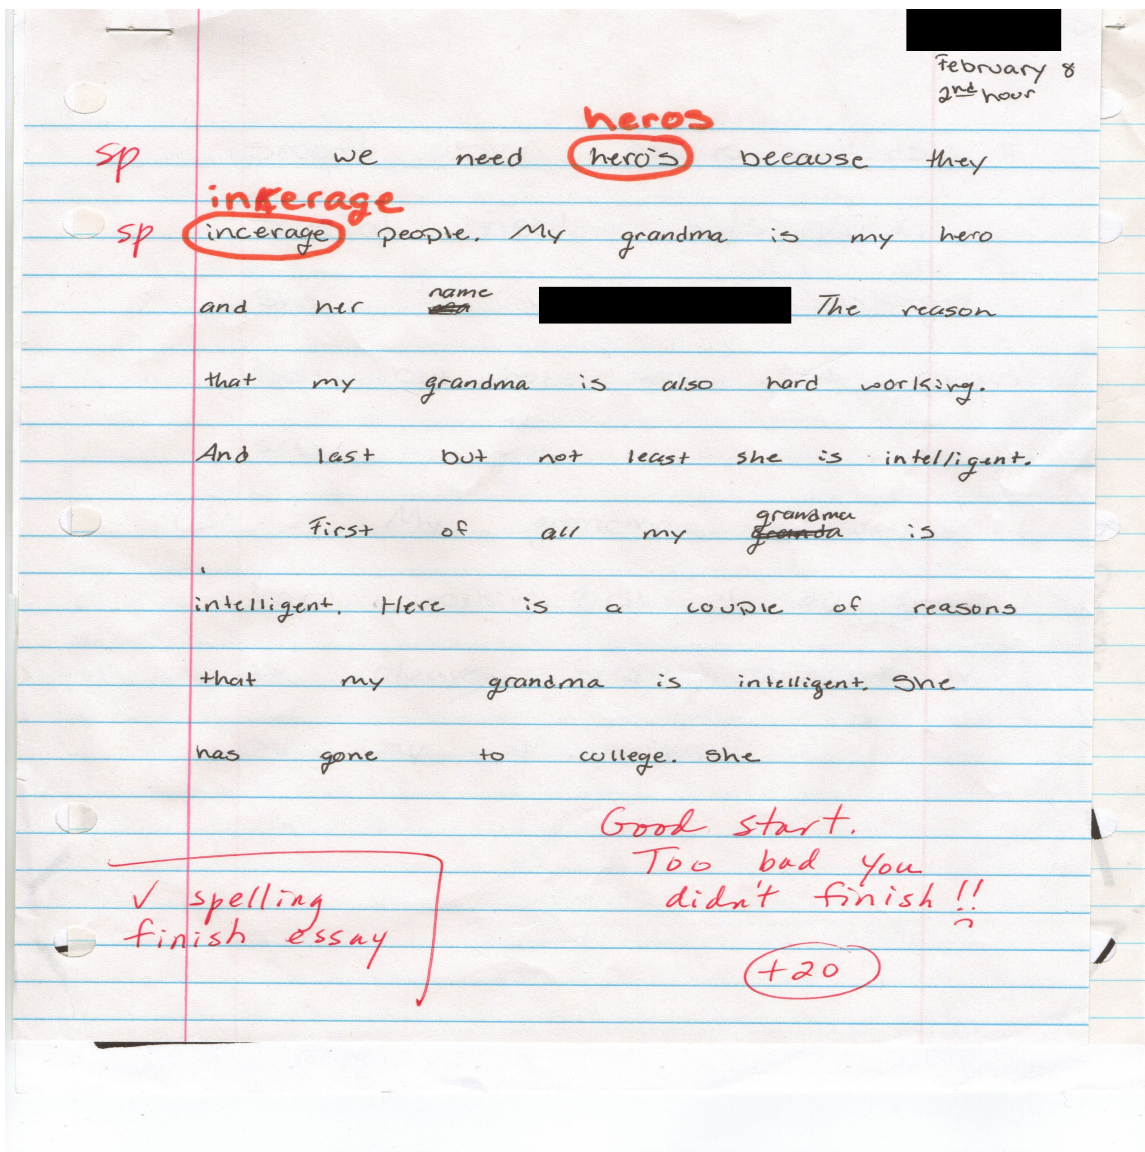 February 8
2nd hour
heros
sp we need hero's because they
inkerage
sp incerage people. My grandma is my hero
name
and her The reason
that my grandma is also hard working.
And last but not least she is intelligent.
grandma
First of all my granda is
intelligent. Here is a couple of reasons
that my grandma is intelligent. She
has gone to college. She
Good start.
Too bad you
didn't finish!!
✓ spelling
finish essay
+20